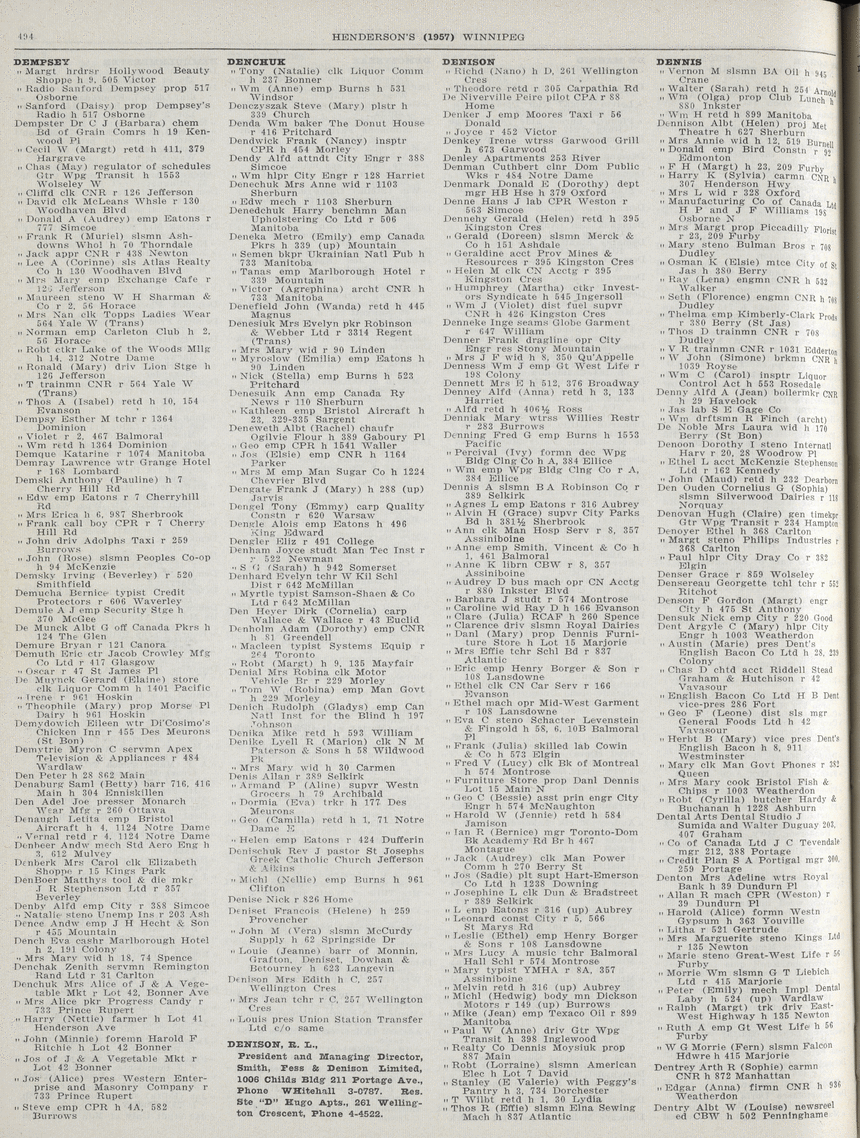 494
HENDERSON'S (1957) WINNIPEG
DEMPSEY
" Margt hrdrsr Hollywood Beauty
Shoppe h 9, 505 Victor
" Radio Sanford Dempsey prop 517
Osborne
" Sanford (Daisy) prop Dempsey's
Radio h 517 Osborne
Dempster Dr C J (Barbara) chem
Bd of Grain Comrs h 19 Ken-
wood Pl
" Cecil W (Margt) retd h 411, 379
Hargrave
" Chas (May) regulator of schedules
Gtr Wpg Transit h 1553
Wolseley W
" Cliffd clk CNR r 126 Jefferson
" David clk McLeans Whsle r 130
Woodhaven Blvd
" Donald A (Audrey) emp Eatons r
777 Simcoe
" Frank R (Muriel) slsmn Ash-
downs Whol h 70 Thorndale
" Jack appr CNR r 438 Newton
" Lee A (Corinne) sls Atlas Realty
Co h 130 Woodhaven Blvd
" Mrs Mary emp Exchange Cafe r
126 Jefferson
" Maureen steno W H Sharman &
Co r 2, 56 Horace
" Mrs Nan clk Topps Ladies Wear
564 Yale W (Trans)
" Norman emp Carleton Club h 2,
56 Horace
" Robt ctkr Lake of the Woods Mllg
h 14, 312 Notre Dame
" Ronald (Mary) driv Lion Stge h
126 Jefferson
" T trainmn CNR r 564 Yale W
(Trans)
" Thos A (Isabel) retd h 10, 154
Evanson
Dempsy Esther M tchr r 1364
Dominion
" Violet r 2, 467 Balmoral
" Wm retd h 1364 Dominion
Demque Katarine r 1074 Manitoba
Demray Lawrence wtr Grange Hotel
r 168 Lombard
Demski Anthony (Pauline) h 7
Cherry Hill Rd
" Edw emp Eatons r 7 Cherryhill
Rd
" Mrs Erica h 6, 987 Sherbrook
" Frank call boy CPR r 7 Cherry
Hill Rd
" John driv Adolphs Taxi r 259
Burrows
" John (Rose) slsmn Peoples Co-op
h 94 McKenzie
Demsky Irving (Beverley) r 520
Smithfield
Demucha Bernice typist Credit
Protectors r 606 Waverley
Demule A J emp Security Stge h
370 McGee
De Munck Albt G off Canada Pkrs h
124 The Glen
Demure Bryan r 121 Canora
Demuth Eric ctr Jacob Crowley Mfg
Co Ltd r 417 Glasgow
" Oscar r 47 St James Pl
De Muynck Gerard (Elaine) store
clk Liquor Comm h 1401 Pacific
" Irene r 961 Hoskin
" Theophile (Mary) prop Morse Pl
Dairy h 961 Hoskin
Demydowich Eileen wtr Di'Cosimo's
Chicken Inn r 455 Des Meurons
(St Bon)
Demytrie Myron C servmn Apex
Television & Appliances r 484
Wardlaw
Den Peter h 28 862 Main
Denaburg Saml (Betty) barr 716, 416
Main h 304 Enniskillen
Den Adel Joe presser Monarch
Wear Mfg r 260 Ottawa
Denaugh Letita emp Bristol
Aircraft h 4, 1124 Notre Dame
" Vernal retd r 4, 1124 Notre Dame
Denbeer Andw mech Std Aero Eng h
3, 612 Mulvey
Denberk Mrs Carol clk Elizabeth
Shoppe r 15 Kings Park
DenBoer Matthys tool & die mkr
J R Stephenson Ltd r 357
Beverley
Denby Alfd emp City r 388 Simcoe
" Natalie steno Unemp Ins r 203 Ash
Dence Andw emp J H Hecht & Son
r 455 Mountain
Dench Eva cashr Marlborough Hotel
h 2, 191 Colony
" Mrs Mary wid h 18, 74 Spence
Denchak Zenith servmn Remington
Rand Ltd r 31 Carlton
Denchuk Mrs Alice of J & A Vege-
table Mkt r Lot 42, Bonner Ave
" Mrs Alice pkr Progress Candy r
733 Prince Rupert
" Harry (Nettie) farmer h Lot 41
Henderson Ave
" John (Minnie) foremn Harold F
Ritchie h Lot 42 Bonner
" Jos of J & A Vegetable Mkt r
Lot 42 Bonner
" Jos (Alice) pres Western Enter-
prise and Masonry Company r
733 Prince Rupert
" Steve emp CPR h 4A, 582
Burrows
DENCHUK
" Tony (Natalie) clk Liquor Comm
h 237 Bonner
" Wm (Anne) emp Burns h 531
Windsor
Denczyszak Steve (Mary) plstr h
339 Church
Denda Wm baker The Donut House
r 416 Pritchard
Dendwick Frank (Nancy) insptr
CPR h 454 Morley
" Geo emp CPR h 1541 Waller
Dendy Alfd attndt City Engr r 388
Simcoe
" Wm hlpr City Engr h 128 Harriet
Denechuk Mrs Anne wid r 1103
Sherburn
" Edw mech r 1103 Sherburn
Denedchuk Harry benchmn Man
Upholstering Co Ltd r 506
Manitoba
Deneka Metro (Emily) emp Canada
Pkrs h 339 (up) Mountain
" Semen bkpr Ukranian Natl Pub h
733 Manitoba
" Tanas emp Marlborough Hotel r
339 Mountain
" Victor (Agrephina) archt CNR h
733 Manitoba
Denefield John (Wanda) retd h 445
Magnus
Denesiuk Mrs Evelyn pkr Robinson
& Webber Ltd r 3314 Regent
(Trans)
" Mrs Mary wid r 90 Linden
" Myroslow (Emilia) emp Eatons h
90 Linden
" Nick (Stella) emp Burns h 523
Pritchard
Denesuik Ann emp Canada Ry
News r 110 Sherburn
" Kathleen emp Bristol Aircraft h
23, 329-335 Sargent
Deneweth Albt (Rachel) chaufr
Ogilvie Flour h 389 Gaboury Pl
" Geo, emp CPR h 389 Gaboury Pl
" Jos (Elsie) emp CNR h 1164
Parker
" Mrs M emp Man Sugar Co h 1224
Chevrier Blvd
Dengate Frank J (Mary) h 288 (up)
Jarvis
Dengel Tony (Emmy) carp Quality
Constn r 620 Warsaw
Dengle Alois emp Eatons h 496
King Edward
Dengler Eliz r 491 College
Denham Joyce studt Man Tec Inst r
r 522 Newman
" S G (Sarah) h 942 Somerset
Denhard Evelyn tchr W Kil Schl
Dist r 642 McMillan
" Myrtle typist Samson-Shaen & Co
Ltd r 642 McMillan
Den Heyer Dirk (Cornelia) carp
Wallace & Wallace r 43 Euclid
Denholm Adam (Dorothy) emp CNR
h 81 Greendell
" Macleen typist Systems Equip r
264 Toronto
" Robt (Margt) h 9, 135 Mayfair
Denial Mrs Robina clk Motor
Vehicle Br r 229 Morley
" Tom W (Robina) emp Man Govt
h 229 Morley
Denich Rudolph (Gladys) emp Can
Natl Inst for the Blind h 197
Johnson
Denika Mike retd h 593 William
Denike Lyell R (Marion) clk N M
Paterson & Sons h 58 Wildwood
Pk
" Mrs Mary wid h 30 Carmen
Denis Allan r 389 Selkirk
" Armand P (Aline) supvr Westn
Grocers h 79 Archibald
" Dormia (Eva) trkr h 177 Des
Meurons
" Geo (Camilla) retd h 1, 71 Notre
Dame E
" Helen emp Eatons r 424 Dufferin
Denischuk Rev J pastor St Josephs
Greek Catholic Church Jefferson
& Aikins
" Michl (Nellie) emp Burns h 961
Clifton
Denise Nick r 826 Home
Deniset Francois (Helene) h 259
Provencher
" John M (Vera) slsmn McCurdy
Supply h 62 Springside Dr
" Louie (Jeanne) barr of Monnin,
Grafton, Deniset, Dowhan &
Betourney h 623 Langevin
Denison Mrs Edith h C, 257
Wellington Cres
" Mrs Jean tchr r C, 257 Wellington
Cres
" Louis pres Union Station Transfer
Ltd c/o same
DENISON, R. L.,
President and Managing Director,
Smith, Fess & Denison Limited,
1006 Childs Bldg 211 Portage Ave.,
Phone WHitehall 3-0787. Res.
Ste "D" Hugo Apts., 261 Welling-
ton Crescent, Phone 4-4522.
DENISON
" Richd (Nano) h D, 261 Wellington
Cres
" Theodore retd r 305 Carpathia Rd
De Niverville Peire pilot CPA r 88
Home
Denker J emp Moores Taxi r 56
Donald
" Joyce r 452 Victor
Denkey Irene wtrss Garwood Grill
h 673 Garwood
Denley Apartments 253 River
Denman Cuthbert clnr Dom Public
Wks r 484 Notre Dame
Denmark Donald E (Dorothy) dept
mgr HB Hse h 379 Oxford
Denne Hans J lab CPR Weston r
563 Simcoe
Dennehy Gerald (Helen) retd h 395
Kingston Cres
" Gerald (Doreen) slsmn Merck &
Co h 151 Ashdale
" Geraldine acct Prov Mines &
Resources r 395 Kingston Cres
" Helen M clk CN Acctg r 395
Kingston Cres
" Humphrey (Martha) ctkr Invest-
ors Syndicate h 545 Ingersoll
" Wm J (Violet) dist fuel supvr
CNR h 426 Kingston Cres
Denneke Inge seams Globe Garment
r 647 William
Denner Frank dragline opr City
Engr res Stony Mountain
" Mrs J F wid h 8, 350 Qu'Appelle
Denness Wm J emp Gt West Life r
198 Colony
Dennett Mrs E h 512, 376 Broadway
Denney Alfd (Anna) retd h 3, 133
Harriet
" Alfd retd h 406½ Ross
Denniak Mary wtrss Willies Restr
r 283 Burrows
Denning Fred G emp Burns h 1553
Pacific
" Percival (Ivy) formn dec Wpg
Bldg Clng Co h A, 384 Ellice
" Wm emp Wpg Bldg Clng Co r A,
384 Ellice
Dennis A slsmn B A Robinson Co r
389 Selkirk
" Agnes L emp Eatons r 316 Aubrey
" Alvin H (Grace) supvr City Parks
Bd h 381½ Sherbrook
" Ann clk Man Hosp Serv r 8, 357
Assiniboine
" Anne emp Smith, Vincent & Co h
1, 461 Balmoral
" Anne K librn CBW r 8, 357
Assiniboine
" Audrey D bus mach opr CN Acctg
r 880 Inkster Blvd
" Barbara J studt r 574 Montrose
" Caroline wid Ray D h 166 Evanson
" Clare (Julia) RCAF h 260 Spence
" Clarence driv slsmn Royal Dairies
" Danl (Mary) prop Dennis Furni-
ture Store h Lot 15 Marjorie
" Mrs Effie tchr Schl Bd r 837
Atlantic
" Eric emp Henry Borger & Son r
108 Lansdowne
" Ethel clk CN Car Serv r 166
Evanson
" Ethel mach opr Mid-West Garment
r 108 Lansdowne
" Eva C steno Schacter Levenstein
& Fingold h 58, 6, 10B Balmoral
Pl
" Frank (Julia) skilled lab Cowin
& Co h 573 Elgin
" Fred V (Lucy) clk Bk of Montreal
h 574 Montrose
" Furniture Store prop Danl Dennis
Lot 15 Main N
" Geo C (Bessie) asst prin engr City
Engr h 574 McNaughton
" Harold W (Jennie) retd h 584
Jamison
" Ian R (Bernice) mgr Toronto-Dom
Bk Academy Rd Br h 467
Montague
" Jack (Audrey) clk Man Power
Comm h 270 Berry St
" Jos (Sadie) plt supt Hart-Emerson
Co Ltd h 1238 Downing
" Josephine L clk Dun & Bradstreet
r 389 Selkirk
" L emp Eatons r 316 (up) Aubrey
" Leonard const City r 5, 566
St Marys Rd
" Leslie (Ethel) emp Henry Borger
& Sons r 108 Lansdowne
" Mrs Lucy A music tchr Balmoral
Hall Schl r 574 Montrose
" Mary typist YMHA r 8A, 357
Assiniboine
" Melvin retd h 316 (up) Aubrey
" Michl (Hedwig) body mn Dickson
Motors r 149 (up) Burrows
" Mike (Jean) emp Texaco Oil r 899
Manitoba
" Paul W (Anne) driv Gtr Wpg
Transit h 398 Inglewood
" Realty Co Dennis Moysiuk prop
887 Main
" Robt (Lorraine) slsmn American
Elec h Lot 7 David
" Stanley (E Valerie) with Peggy's
Pantry h 3, 734 Dorchester
" T Wilbt retd h 1, 30 Lydia
" Thos R (Effie) slsmn Elna Sewing
Mach h 837 Atlantic
DENNIS
" Vernon M slsmn BA Oil h 945
Crane
" Walter (Sarah) retd h 254 Arnold
" Wm (Olga) prop Club Lunch h
880 Inkster
" Wm H retd h 899 Manitoba
Dennison Albt (Helen) proj Met
Theatre h 627 Sherburn
" Mrs Annie wid h 12, 519 Burnell
" Donald emp Bird Constn r 92
Edmonton
" F H (Margt) h 23, 209 Furby
" Harry K (Sylvia) carmn CNR h
307 Henderson Hwy
" Mrs L wid r 328 Oxford
" Manufacturing Co of Canada Ltd
H P and J F Williams 198
Osborne N
" Mrs Margt prop Piccadilly Florist
r 23, 209 Furby
" Mary steno Bulman Bros r 708
Dudley
" Osman K (Elsie) mtce City of St
Jas h 380 Berry
" Ray (Lena) engmn CNR h 532
Walker
" Seth (Florence) engmn CNR h 708
Dudley
" Thelma emp Kimberly-Clark Prods
r 380 Berry (St Jas)
" Thos D trainmn CNR r 708
Dudley
" V R trainmn CNR r 1031 Edderton
" W John (Simone) brkmn CNR h
1039 Royse
" Wm C (Carol) insptr Liquor
Control Act h 553 Rosedale
Denny Alfd A (Jean) boilermkr CNR
h 29 Havelock
" Jas lab S E Gage Co
" Wm drftsmn R Finch (archt)
De Noble Mrs Laura wid h 170
Berry (St Bon)
Denoon Dorothy I steno Internatl
Harv r 20, 28 Woodrow Pl
" Ethel L acct McKenzie Stephenson
Ltd r 162 Kennedy
" John (Maud) retd h 232 Dearborn
Den Ouden Cornelius G (Sophia)
slsmn Silverwood Dairies r 118
Norquay
Denovan Hugh (Claire) gen timekpr
Gtr Wpg Transit r 234 Hampton
Denoyer Ethel h 368 Carlton
" Margt steno Philips Industries r
368 Carlton
" Paul hlpr City Dray Co r 382
Elgin
Denser Grace r 859 Wolseley
Densereau Georgette tchl tchr r 552
Ritchot
Denson F Gordon (Margt) engr
City h 475 St Anthony
Densuk Nick emp City r 220 Good
Dent Argyle C (Mary) hlpr City
Engr h 1003 Weatherdon
" Austin (Marie) pres Dent's
English Bacon Co Ltd h 28, 239
Colony
" Chas D chtd acct Riddell Stead
Graham & Hutchison r 42
Vavasour
" English Bacon Co Ltd H B Dent
vice-pres 286 Fort
" Geo F (Leone) dist sls mgr
General Foods Ltd h 42
Vavasour
" Herbt B (Mary) vice pres Dent's
English Bacon h 8, 911
Westminster
" Mary clk Man Govt Phones r 382
Queen
" Mrs Mary cook Bristol Fish &
Chips r 1003 Weatherdon
" Robt (Cyrilla) butcher Hardy &
Buchanan h 1228 Ashburn
Dental Arts Dental Studio J
Sumida and Walter Duguay 203,
407 Graham
" Co of Canada Ltd J C Tevendale
mgr 212, 388 Portage
" Credit Plan S A Portigal mgr 200,
259 Portage
Denton Mrs Adeline wtrs Royal
Bank h 39 Dundurn Pl
" Allan R mach CPR (Weston) r
39 Dundurn Pl
" Harold (Alice) formn Westn
Gypsum h 363 Youville
" Litha r 521 Gertrude
" Mrs Marguerite steno Kings Ltd
r 135 Newton
" Marie steno Great-West Life r 56
Furby
" Morrie Wm slsmn G T Liebich
Ltd r 415 Marjorie
" Peter (Emily) mech Impl Dental
Laby h 524 (up) Wardlaw
" Ralph (Margt) trk driv East-
West Highway h 135 Newton
" Ruth A emp Gt West Life h 56
Furby
" W G Morrie (Fern) slsmn Falcon
Hdwre h 415 Marjorie
Dentrey Arth R (Sophie) carmn
CNR h 872 Manhattan
" Edgar (Anna) firmn CNR h 936
Weatherdon
Dentry Albt W (Louise) newsreel
ed CBW h 502 Penninghame